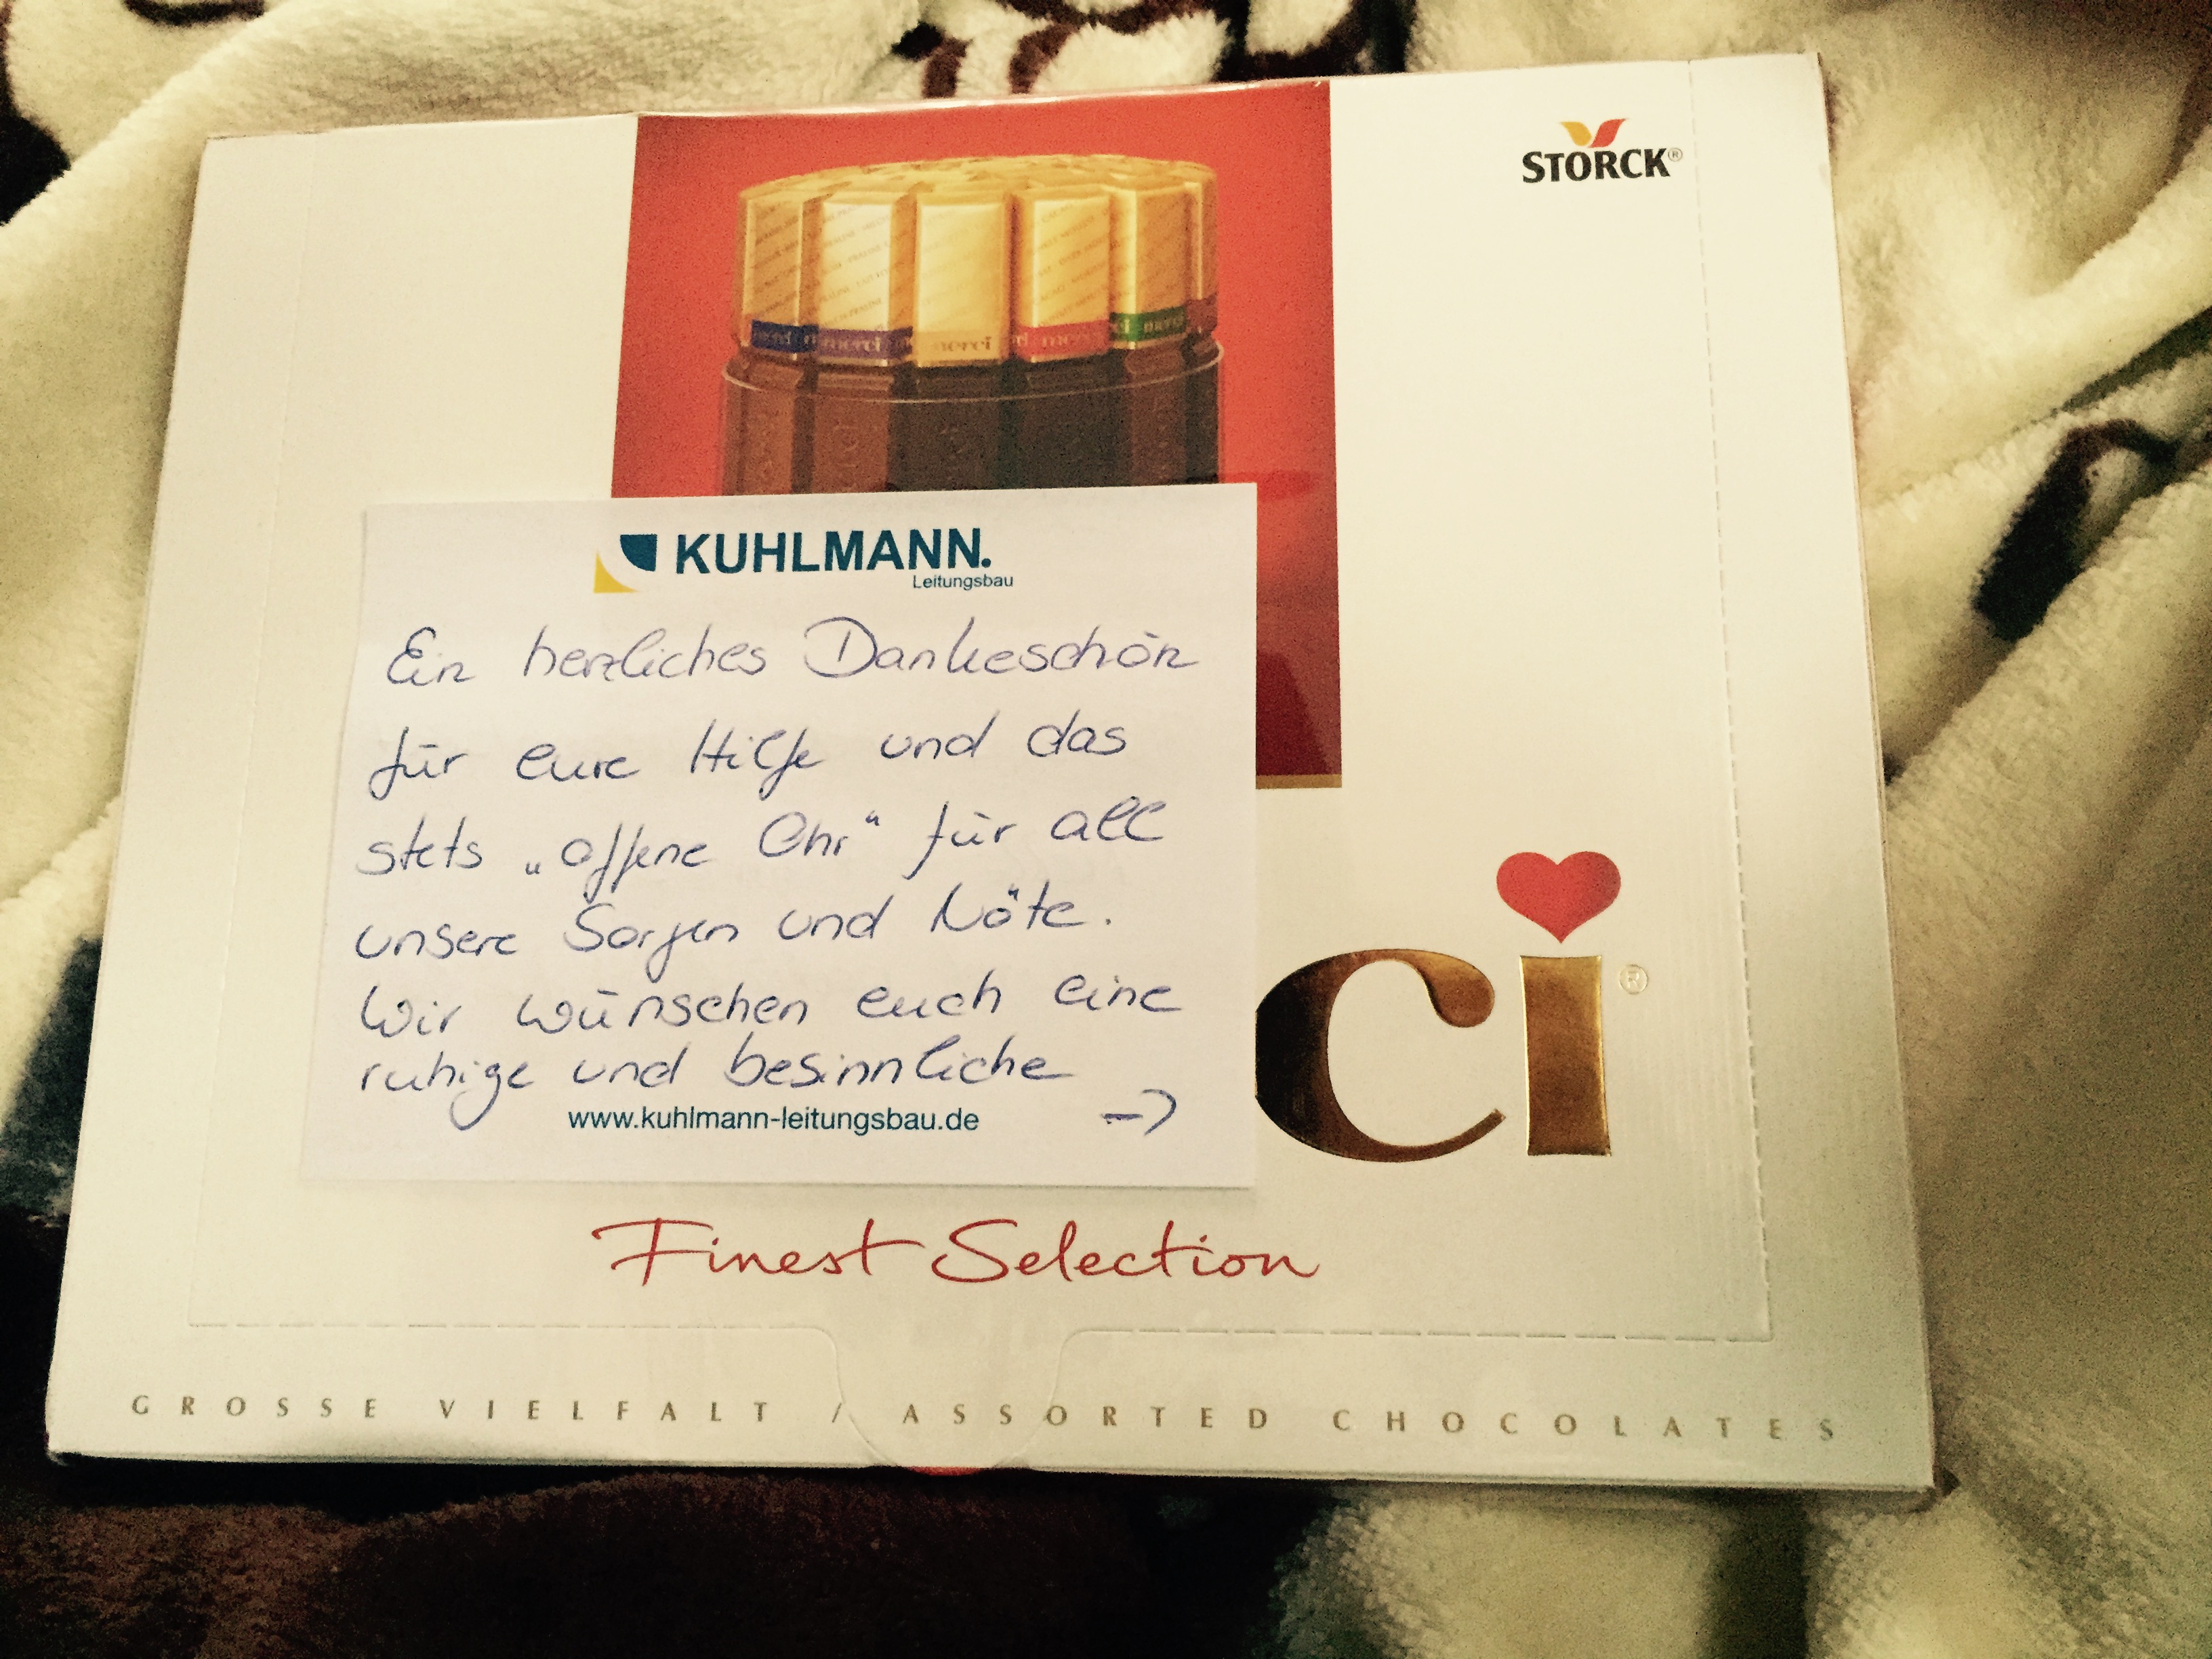 STORCK®
merci
merci
merci
KUHLMANN.
Leitungsbau
Ein herzliches Dankeschön
für eure Hilfe und das
stets „offene Ohr“ für all
unsere Sorgen und Nöte.
Wir wünschen euch eine
ruhige und besinnliche
www.kuhlmann-leitungsbau.de
->
ci®
Finest Selection
GROSSE VIELFALT / ASSORTED CHOCOLATES